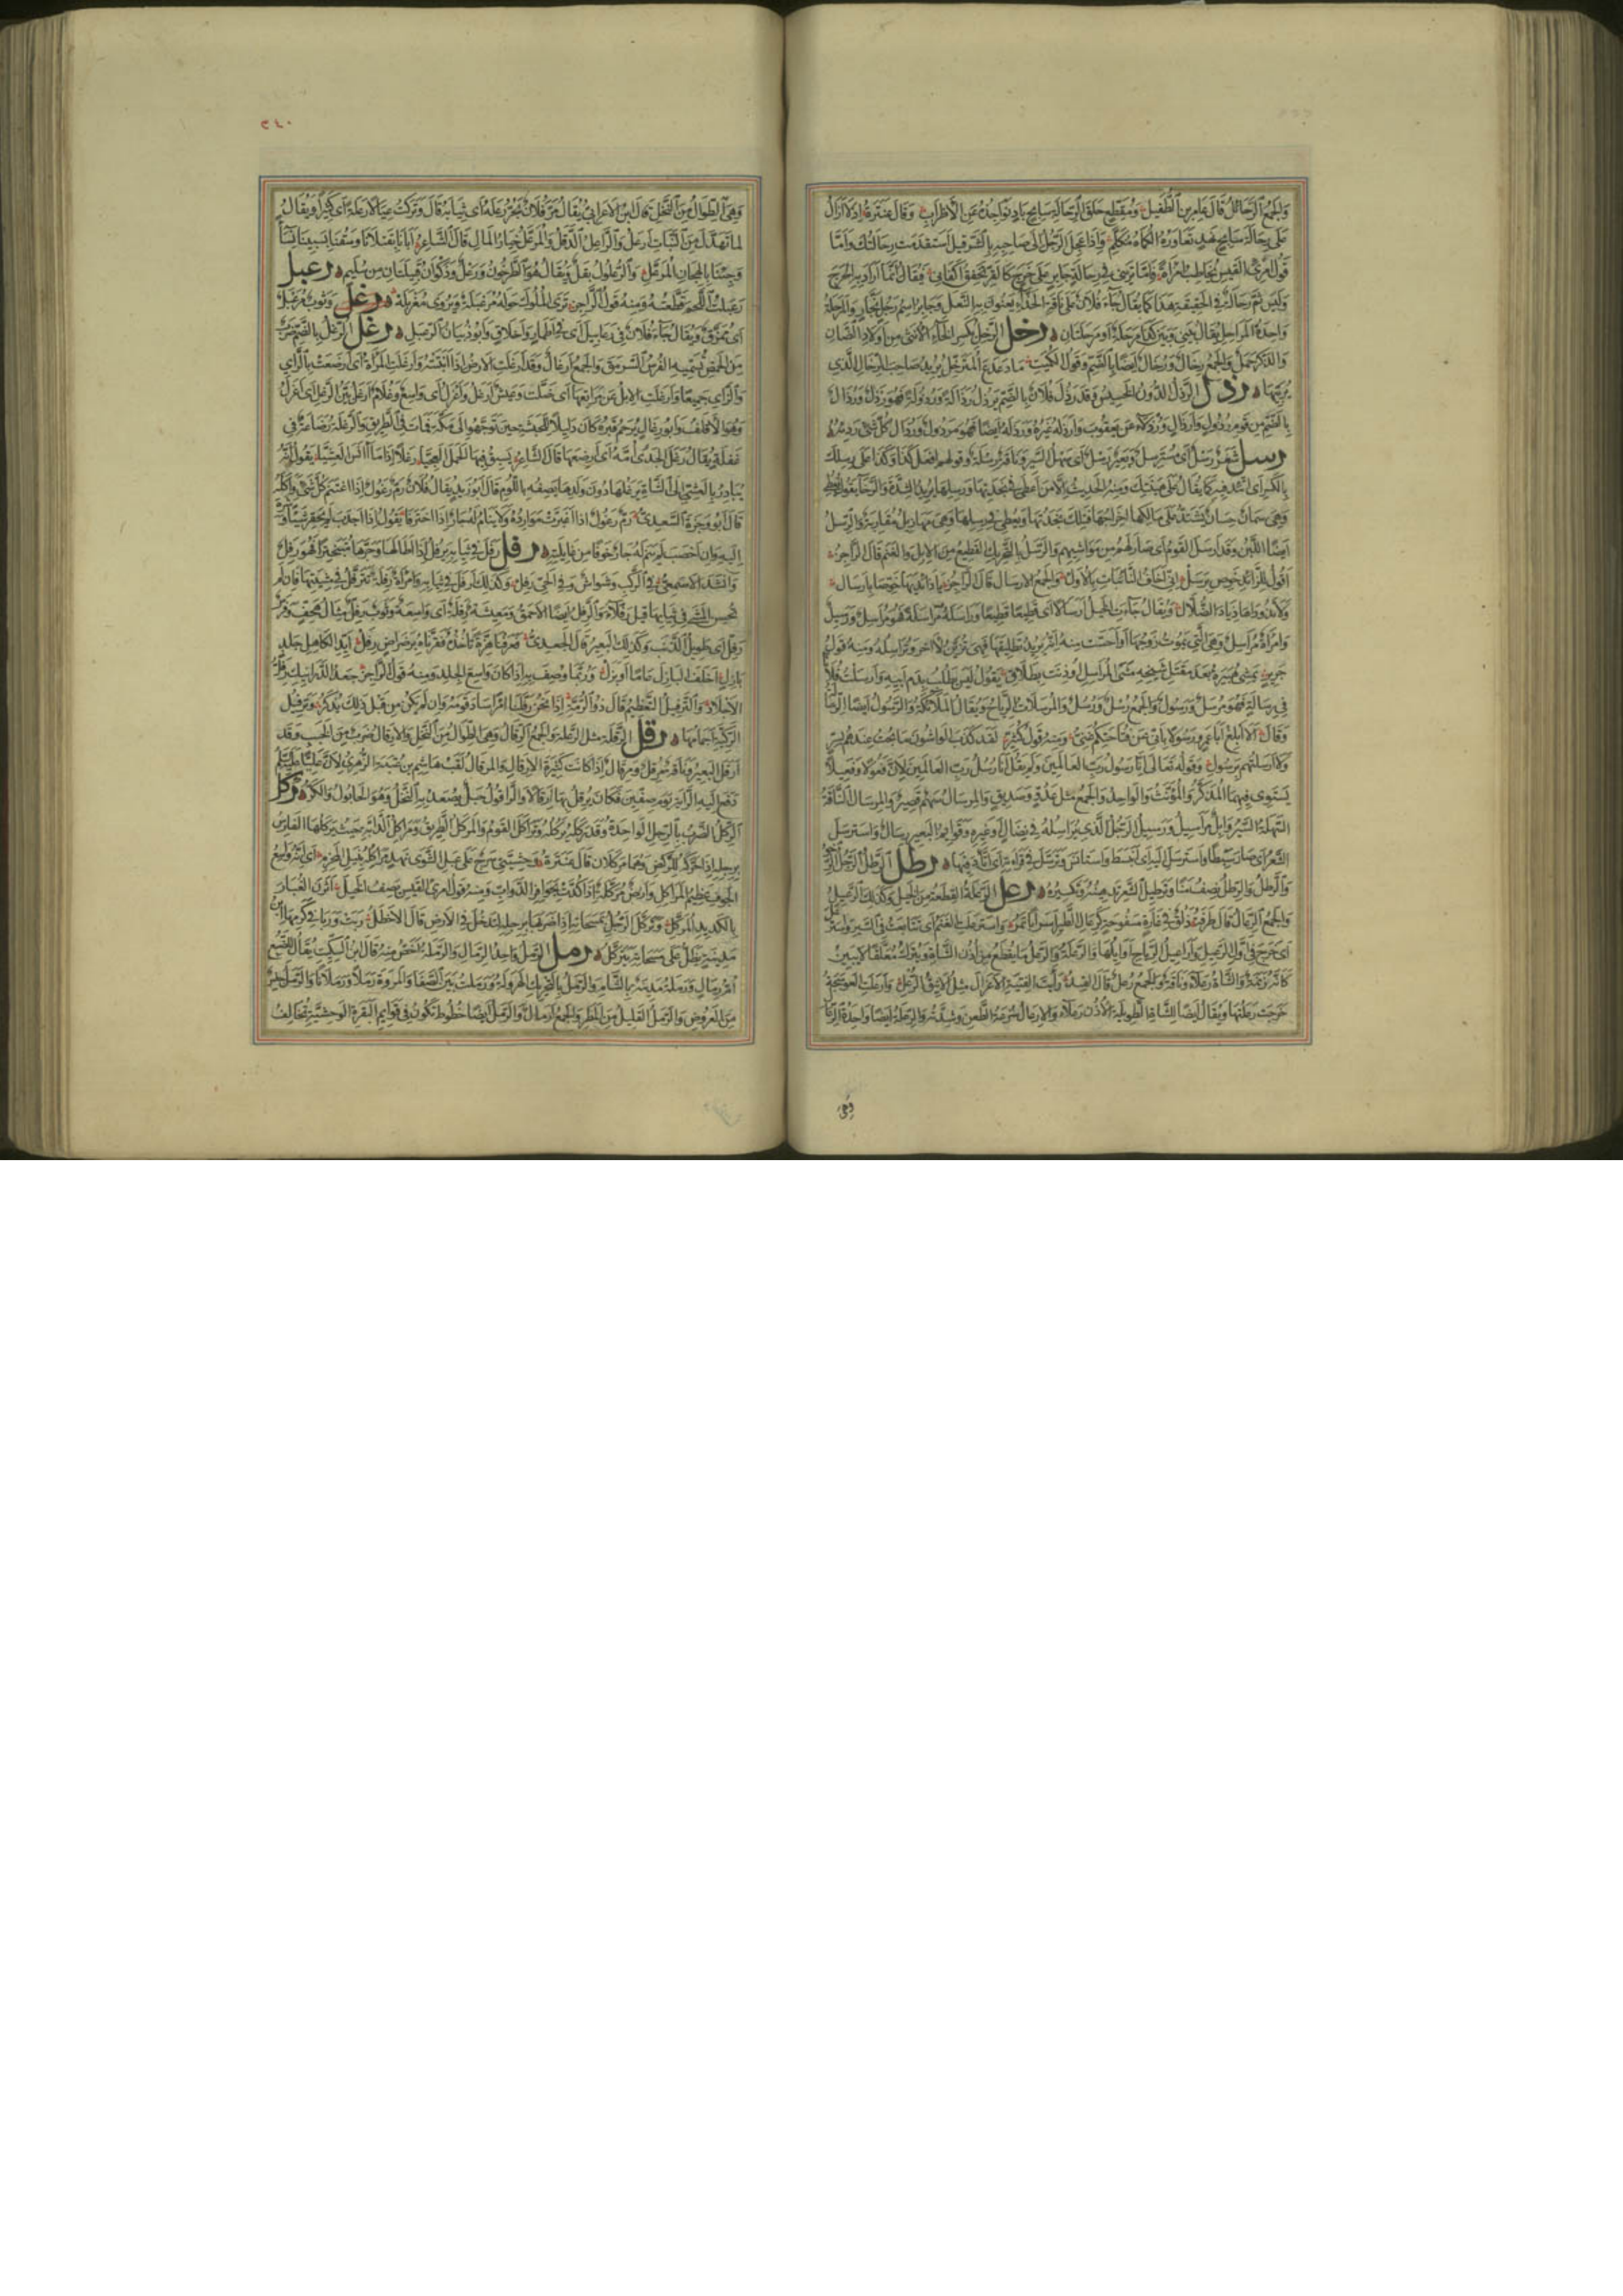 والجمع الرحائل قال عامر بن الطفيل ومقطع حلق الرحالة سابح باد نواجذه عن الأظراب وقال عنترة إذ لا أزال
على رحالة سابح نهد تعاوره الكماة مكلم وإذا عجل الرجل إلى صاحبه بالشر قيل استقدمت رحالتك وأما
قول امرئ القيس يخاطب امرأة فإما تريني في رحالة جابر على حرج كالقر تخفق أكفاني فيقال إنما أراد به الحرج
وليس ثم رحالة في الحقيقة هذا كما يقال جاء فلان على ناقة الحذاء يعنون به النعل وجابر اسم رجل نجار والمرحلة
واحدة المراحل يقال بيني وبين كذا مرحلة أو مرحلتان رخل الرخل بكسر الخاء الأنثى من أولاد الضأن
والذكر حمل والجمع رخال ورخال أيضا بالضم وقول الكميت
يربيها رذل الرذل الدون الخسيس وقد رذل فلان بالضم يرذل رذالة ورذولة فهو رذل ورذال
بالضم من قوم رذول وأرذال ورذلاء عن يعقوب وأرذله غيره ورذله أيضا فهو مرذول ورذال كل شيء رديئه
رسل شعر رسل أي مسترسل وبعير رسل أي سهل السير وناقة رسلة وقولهم افعل كذا وكذا على رسلك
بالكسر أي اتئد فيه كما يقال على هينتك ومنه الحديث إلا من أعطى في نجدتها ورسلها يريد الشدة والرخاء يقول يعطي
وهي سمان حسان يشتد على مالكها إخراجها فتلك نجدتها ويعطي في رسلها وهي مهازيل مقاربة والرسل
أيضا اللبن وقد أرسل القوم أي صار لهم من مواشيهم والرسل بالتحريك القطيع من الإبل والغنم قال الراجز
أقول للذائد خوص برسل إني أخاف النائبات بالأول والجمع الأرسال قال الراجز يا ذائديها خوصا بإرسال
ولا تذوداها ذياد الضلال ويقال جاءت الخيل أرسالا أي قطيعا قطيعا وراسله مراسلة فهو مراسل ورسيل
وامرأة مراسل وهي التي يموت زوجها أو أحست منه أنه يريد تطليقها فهي تزين لآخر وتراسله ومنه قول
جرير يمشي هبيرة بعد مقتل شيخه مشي المراسل أوذنت بطلاق يقول ليس يطلب بدم أبيه وأرسلت فلانا
في رسالة فهو مرسل ورسول والجمع رسل ورسل والمرسلات الرياح ويقال الملائكة والرسول أيضا الرسالة
وقال ألا أبلغ أبا عمرو رسولا بأني عن فتاحتكم غني ومنه قول كثير لقد كذب الواشون ما بحت عندهم بسر
ولا أرسلتهم برسول وقوله تعالى إنا رسول رب العالمين ولم يقل إنا رسل رب العالمين لأن فعولا وفعيلا
يستوي فيهما المذكر والمؤنث والواحد والجمع مثل عدو وصديق والمرسال سهم قصير والمرسال الناقة
السهلة السير وإبل مراسيل ورسيل الرجل الذي يراسله في نضال أو غيره وقوائم البعير رسال واسترسل
الشعر أي صار سبطا واسترسل إليه أي انبسط واستأنس وترسل في قراءته أي اتأد فيها رطل الرطل الرجل الرخو
والرطل والرطل نصف منا وترطيل الشعر تدهينه وتكسيره رعل الرعلة القطعة من الخيل وكذلك الرعيل
والجمع الرعال قال طرفة ذلق في غارة مسفوحة كرعال الطير أسرابا تمر واسترعلت الغنم أي تتابعت في السير
أي خرج في أول الرعيل وأراعيل الرياح أوائلها والرعلة والرعل ما يقطع من أذن الشاة ويترك معلقا لا يبين
كأنه زنمة والشاة رعلاء وناقة والجمع رعل قال الفند رأيت الفتية الأعزال مثل الأينق الرعل وأرعلت العوسجة
خرجت رعلتها ويقال أيضا للشاة الطويلة الأذن رعلاء والإرعال سرعة الطعن وشدته والرعلة أيضا واحدة الرعال
وهي
٢٤٠
وهي الطوال من النخل قال ابن الأعرابي يقال مر فلان يجر رعله أي ثيابه قال وتركت عيالا رعلة أي كثيرا ويقال
لما تهدل من النبات أرعل والراعل الدقل والمرعل خيار المال قال الشاعر أبأنا بقتلانا وسقنا بسبينا نساء
وجئنا بالهجان المرعل والرعلول بقل ويقال هو الطرخون ورعل وذكوان قبيلتان من سليم رعبل
رعبلت اللحم قطعته ومنه قول الراجز ترى الملوك حوله مرعبلة ويروى مغربلة رغل وثوب مرعبل
أي ممزق ويقال جاء فلان في رعابيل أي في أطمار وأخلاق وأبو ذبيان بن الرعبل رغل الرغل بالضم ضرب
من الحمض تسميه الفرس السرمق والجمع أرغال وقد أرغلت الأرض إذا أنبتته وأرغلت المرأة أي أرضعت بالراي
والزاي جميعا وأرغلت الإبل عن مراتعها أي ضلت وعيش أرغل وأغرل أي واسع وغلام أرغل بين الرغل أي أغرل
وهو الأقلف وأبو رغال يرجم قبره كان دليلا للحبشة حين توجهوا إلى مكة فمات في الطريق والرغلة رضاعة في
غفلة يقال رغل الجدي أمه أي أرضعها قال الشاعر يسبق فيها الحمل العجيا رغلا إذا ما آنس العشيا يقول إنه
يبادر بالعشي إلى الشاة يرغلها دون ولدها يصفه باللؤم قال أبو زيد يقال فلان رم رغول إذا اغتنم كل شيء وأكله
قال أبو وجزة السعدي رم رغول إذا اغبرت موارده ولا ينام له جار إذا اخترفا يقول إذا أجدب لم يحقر شيئا
إليه وإن أخصب لم ينم له جار خوفا من غائلته رفل رفل في ثيابه يرفل إذا أطالها وجرها متبخترا فهو رفل
وأنشد الأصمعي في الركب وشواش وفي الحي رفل وكذلك أرفل في ثيابه وامرأة رفلة تترفل في مشيتها فإن لم
تحسن المشي في ثيابها قيل رفلاء والرفل أيضا الأحمق ومعيشة رفلة أي واسعة وثوب رفل مثال هجف وفرس
رفل أي طويل الذنب وكذلك البعير قال الجعدي فعرفنا هزة تأخذه فقرناه برضراض رفل أيد الكاهل جلد
بازل أخلف البازل عاما أو بزل وربما وصف به إذا كان واسع الجلد ومنه قول الراجز جعد الدرانيك رفل
الأجلاد والترفيل التعظيم قال ذو الرمة إذا نحن رفلنا امرأ ساد قومه وإن لم يكن من قبل ذلك يذكر وترفيل
الركية إجمامها رقل الرقلة مثل الرعلة والجمع الرقال وهي الطوال من النخل والإرقال ضرب من الخبب وقد
أرقل البعير وناقة مرقل ومرقال إذا كانت كثيرة الإرقال والمرقال لقب هاشم بن عتبة الزهري لأن عليا عليه السلام
دفع إليه الراية يوم صفين فكان يرقل بها إرقالا والراقول حبل يصعد به النخل وهو الحابول والكر ركل
الركل الضرب بالرجل الواحدة وقد ركله يركله وتراكل القوم والمركل الطريق ومراكل الدابة حيث يركلها الفارس
برجله إذا حركه للركض وهما مركلان قال عنترة وحشيتي سرج على عبل الشوى نهد مراكله نبيل المحزم أي أنه واسع
الجوف عظيم المراكل وأرض مركلة إذا كدت بحوافر الدواب ومنه قول امرئ القيس يصف الخيل أثرن الغبار
بالكديد المركل وتركل الرجل بمسحاته إذا ضربها برجله لتدخل في الأرض قال الأخطل ربت وربا في كرمها ابن
مدينة يظل على مسحاته يتركل رمل الرمل واحد الرمال والرملة أخص منه قال ابن السكيت يقال للضبع
أم رمال ورملة مدينة بالشام والرمل بالتحريك الهرولة ورملت بين الصفا والمروة رملا ورملانا والرمل جنس
من العروض والرمل القليل من المطر والجمع أرمال والرمل أيضا خطوط تكون في قوائم البقرة الوحشية تخالف